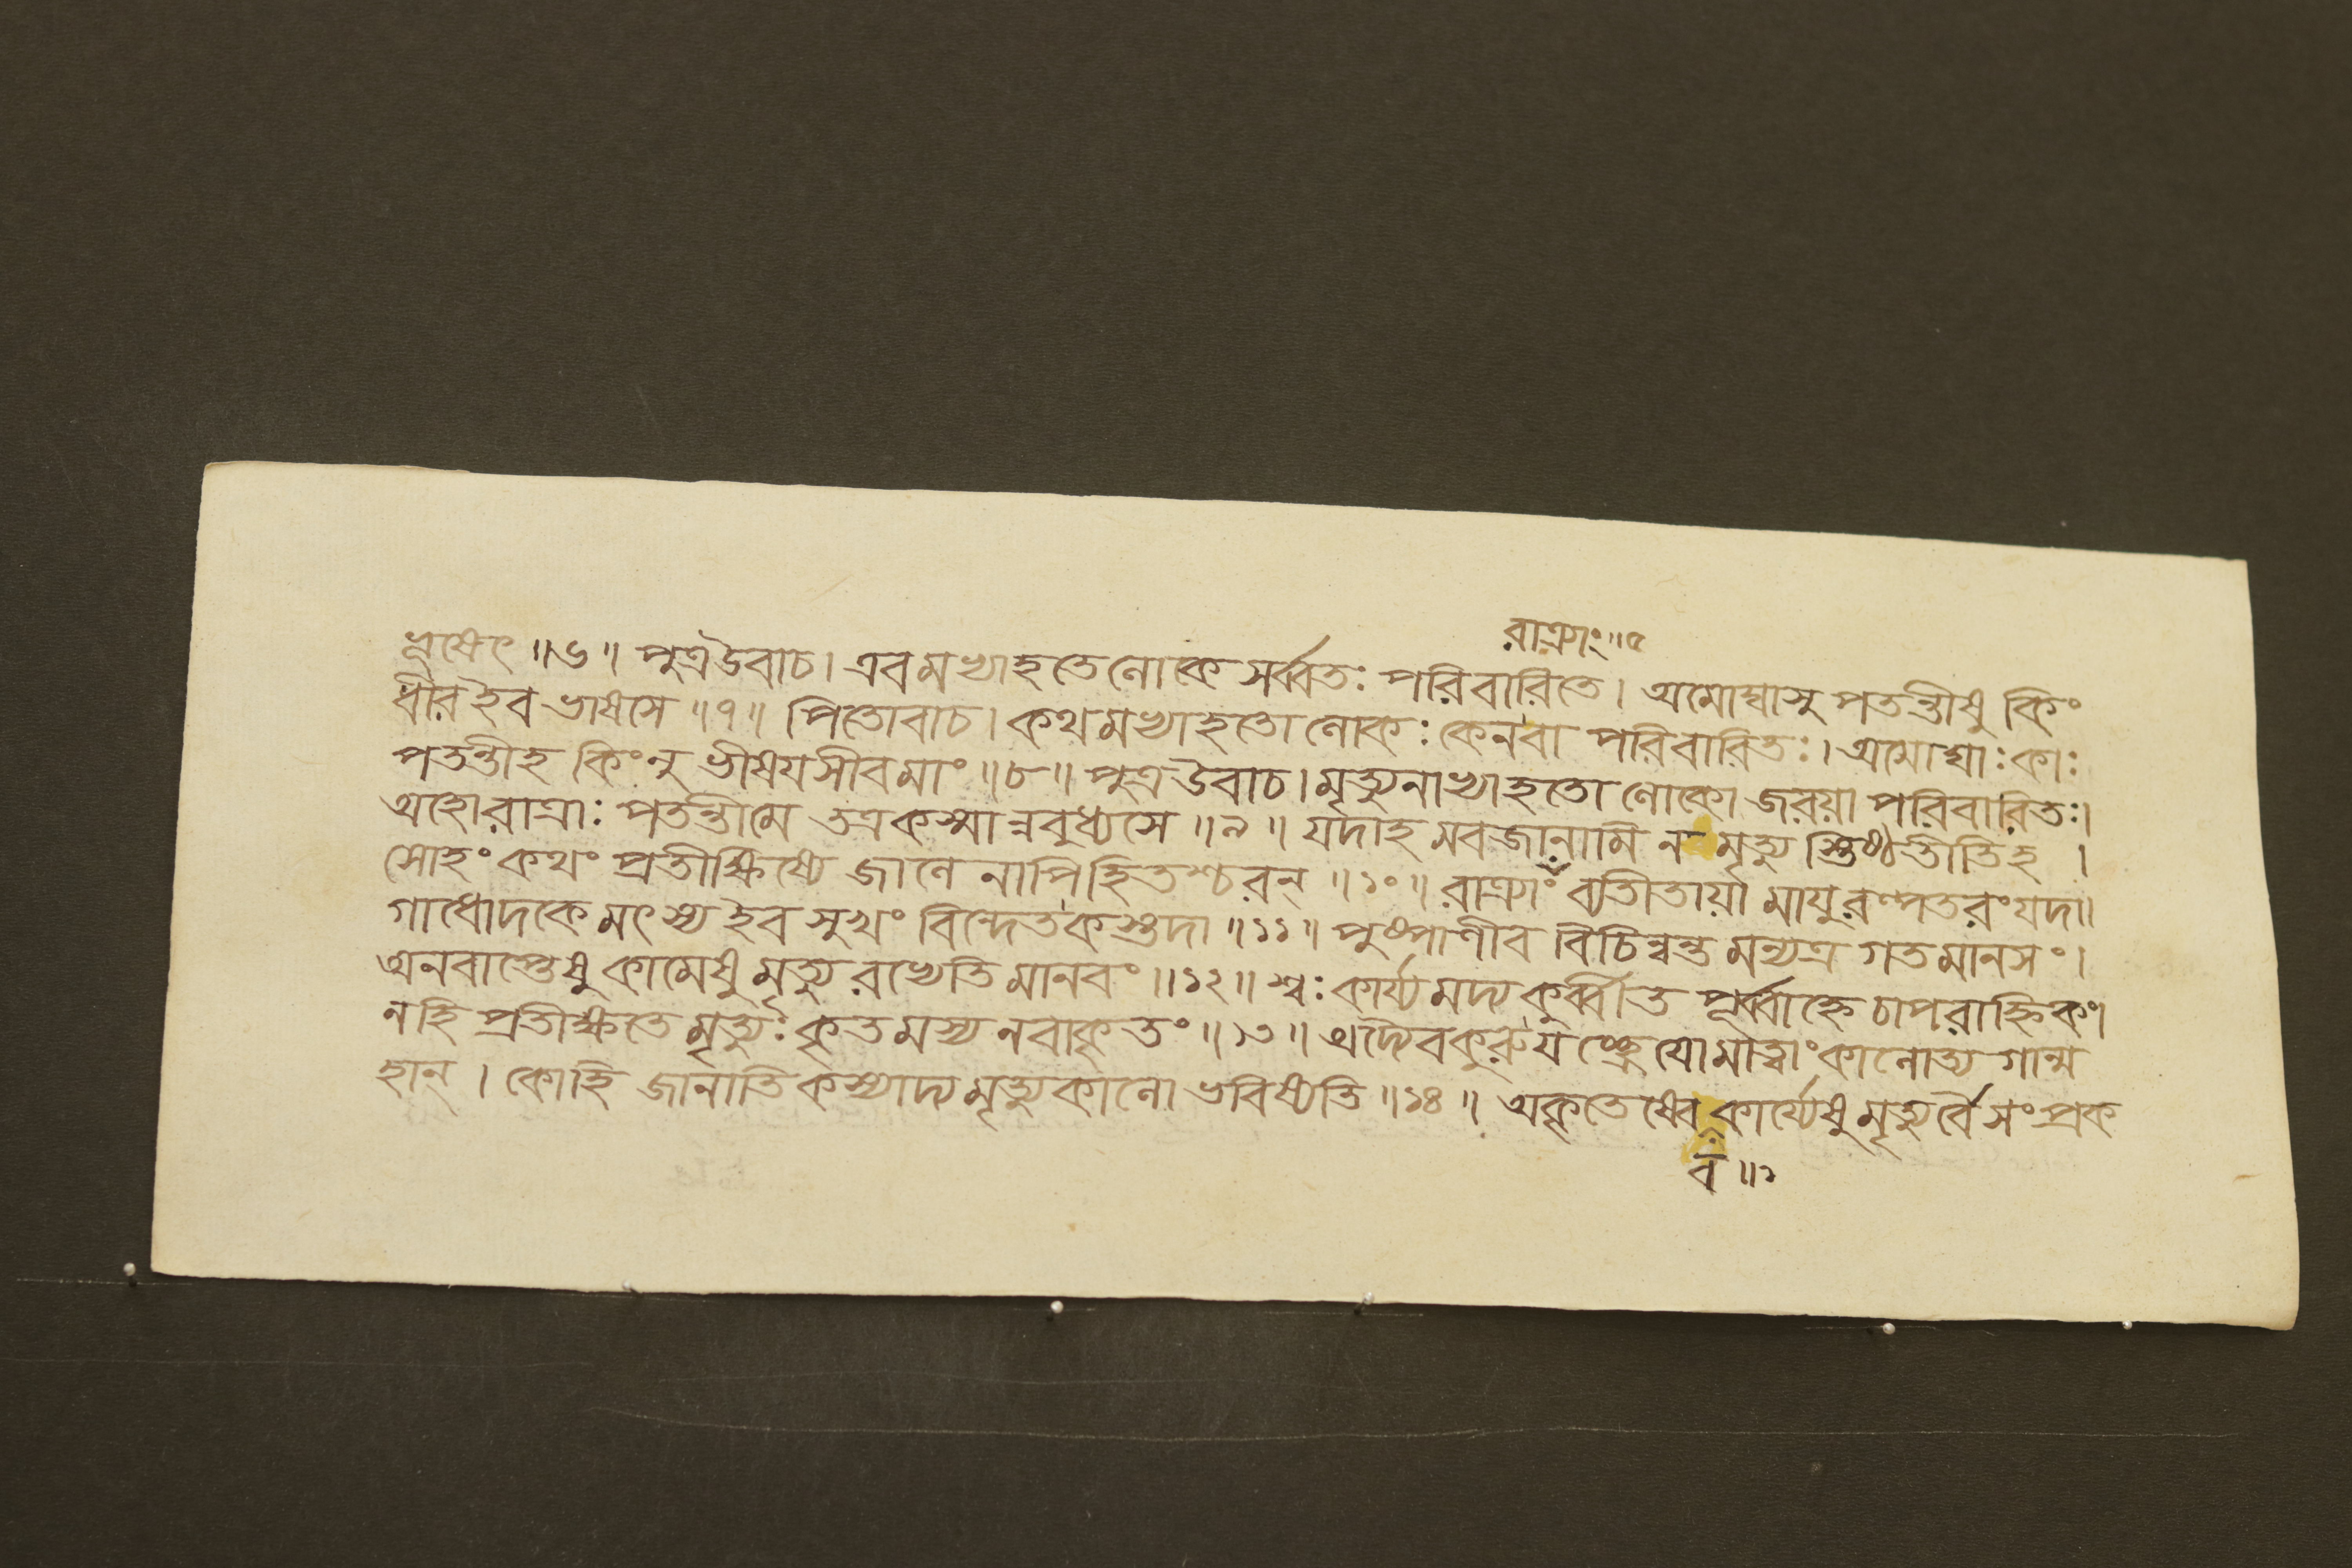 রাত্র্যাং॥৫
ভূষেৎ ॥৬॥ পুত্রউবাচ। এবমভ্যাহতেলোকে সর্ব্বতঃ পরিবারিতে। অমোঘাসু পতন্তীষু কিং
ধীরইব ভাষসে ॥৭॥ পিতোবাচ। কথমভ্যাহতো লোকঃ কেনবা পরিবারিতঃ। অমোঘাঃ কাঃ
পতন্তীহ কিংনু ভীষয়সীবমাং ॥৮॥ পুত্রউবাচ। মৃত্যুনাভ্যাহতো লোকো জরয়া পরিবারিতঃ।
অহোরাত্রাঃ পতন্তীমে তত্রকস্মান্নবুধ্যসে ॥৯॥ যদাহমবজানামি ন মৃত্যুস্তিষ্ঠতীতিহ ।
সোহং কথং প্রতীক্ষিষ্যে জালে নাপিহিতশ্চরন্ ॥১০॥ রাত্র্যাং ব্যতীতায়া মায়ুরল্পতরংযদা॥
গাধোদকে মৎস্যইব সুখং বিন্দেতকস্তদা ॥১১॥ পুষ্পাণীব বিচিন্বন্তমন্যত্র গতমানসং।
অনবাপ্তেষু কামেষু মৃত্যুরভ্যেতি মানবং ॥১২॥ শ্বঃ কার্য্যমদ্য কুর্ব্বীত পূর্ব্বাহ্নে চাপরাহ্নিকং।
নহি প্রতীক্ষতে মৃত্যুঃ কৃতমস্য নবাকৃতং ॥১৩॥ অদ্যৈবকুরু যচ্ছ্রেয়োমাত্বাং কালোত্যগান্ম
হান্ । কোহি জানাতি কস্যাদ্য মৃত্যুকালো ভবিষ্যতি ॥১৪॥ অকৃতেষ্বেবকার্য্যেষু মৃত্যুর্বৈ সংপ্রক
ব ॥১